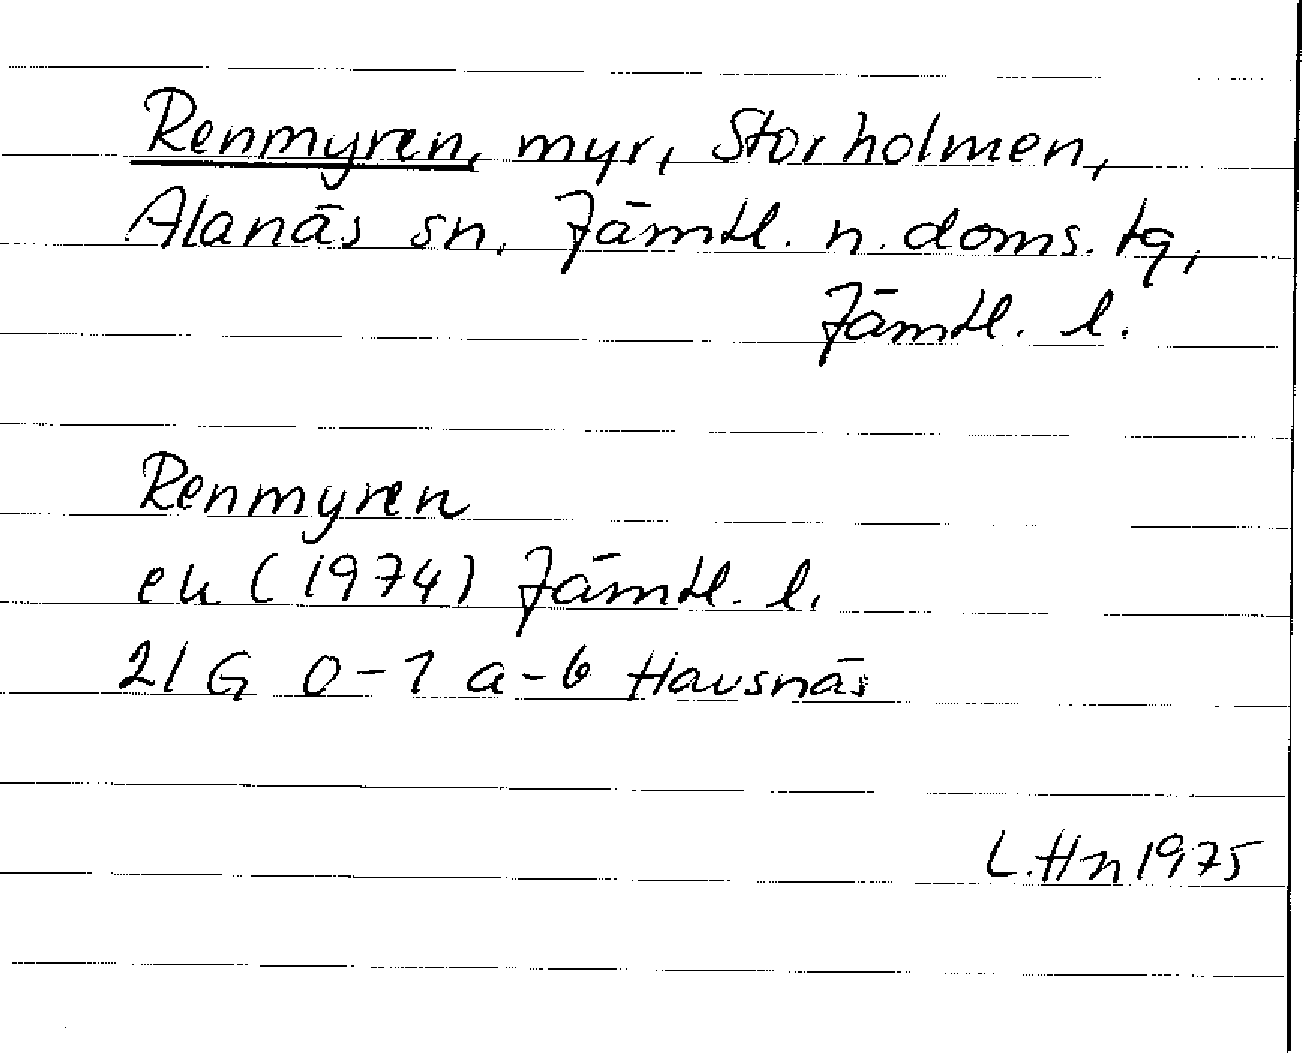 Renmyren, myr, Storholmen,
Alanäs sn. Jämtl. n. doms. tg,
Jämtl. l.
Renmyren
ek (1974) Jämtl. l.
21 G 0-1 a-b Havsnäs
L.Hn 1975